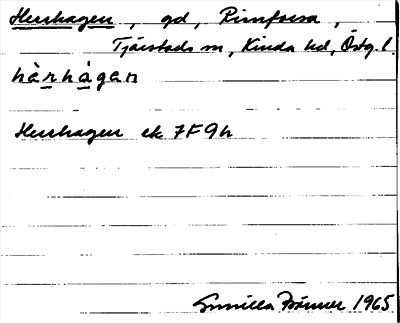 Herrhagen, gd, Rimforsa,
Tjärstads sn, Kinda hd, Östg. l.
hàrhàgan
Herrhagen ek 7F9h
Gunilla 1965